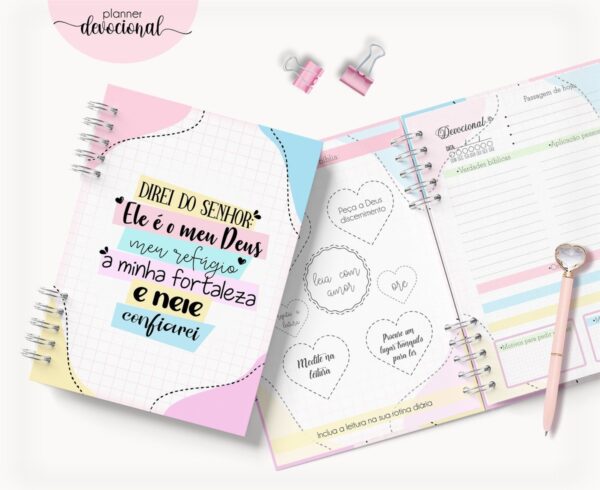 planner
devocional
DIREI DO SENHOR:
Ele é o meu Deus
meu refúgio
a minha fortaleza
e nele
confiarei
Peça a Deus
discernimento
leia com
amor
ore
Medite na
leitura
Procure um
lugar tranquilo
para ler
Inclua a leitura na sua rotina diária
Passagem de hoje
Devocional
DIA:
Verdades bíblicas
Aplicação
Motivos para